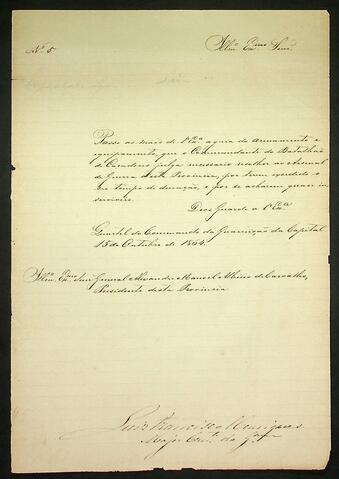 N.º 5
Illm.º Exm.º Senr.
Passo as mãos de V.Exª a guia do armamento e
equipamento, que o Commandante do Batalhão
de Caçadores julga necessario recolher ao Arsenal
de Guerra desta Provincia, por terem excedido o
seu tempo de duração, e por se acharem quasi in
serviveis.
Deos Guarde a V.Exª
Quartel do Commando da Guarnição da Capital
15 de Outubro de 1864.
Illm.º Exm.º Senr General Alexandre Manoel Albino de Carvalho,
Presidente desta Provincia
Luiz Francisco Henriques
Major Com.te da Gar